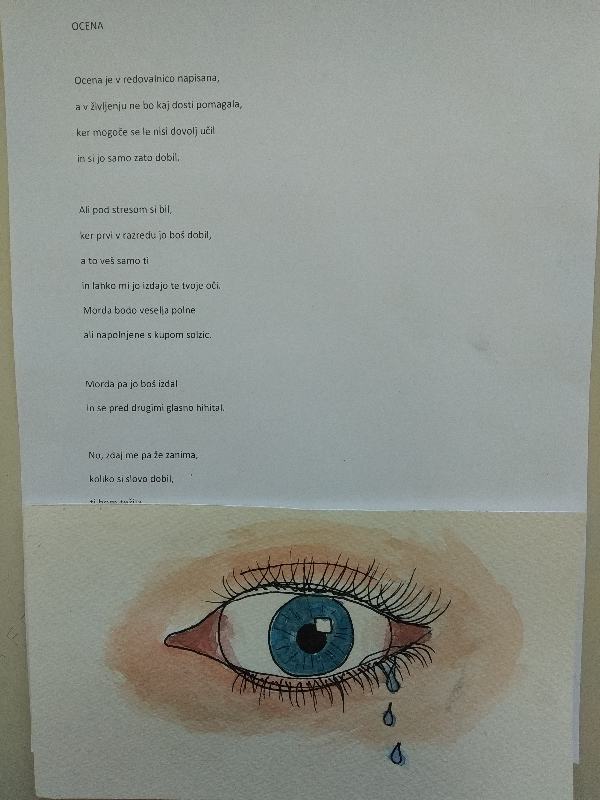 OCENA
Ocena je v redovalnico napisana,
a v življenju ne bo kaj dosti pomagala,
ker mogoče se le nisi dovolj učil
in si jo samo zato dobil.
Ali pod stresom si bil,
ker prvi v razredu jo boš dobil,
a to veš samo ti
in lahko mi jo izdajo te tvoje oči.
Morda bodo veselja polne
ali napolnjene s kupom solzic.
Morda pa jo boš izdal
in se pred drugimi glasno hihital.
No, zdaj me pa že zanima,
koliko si slovo dobil,